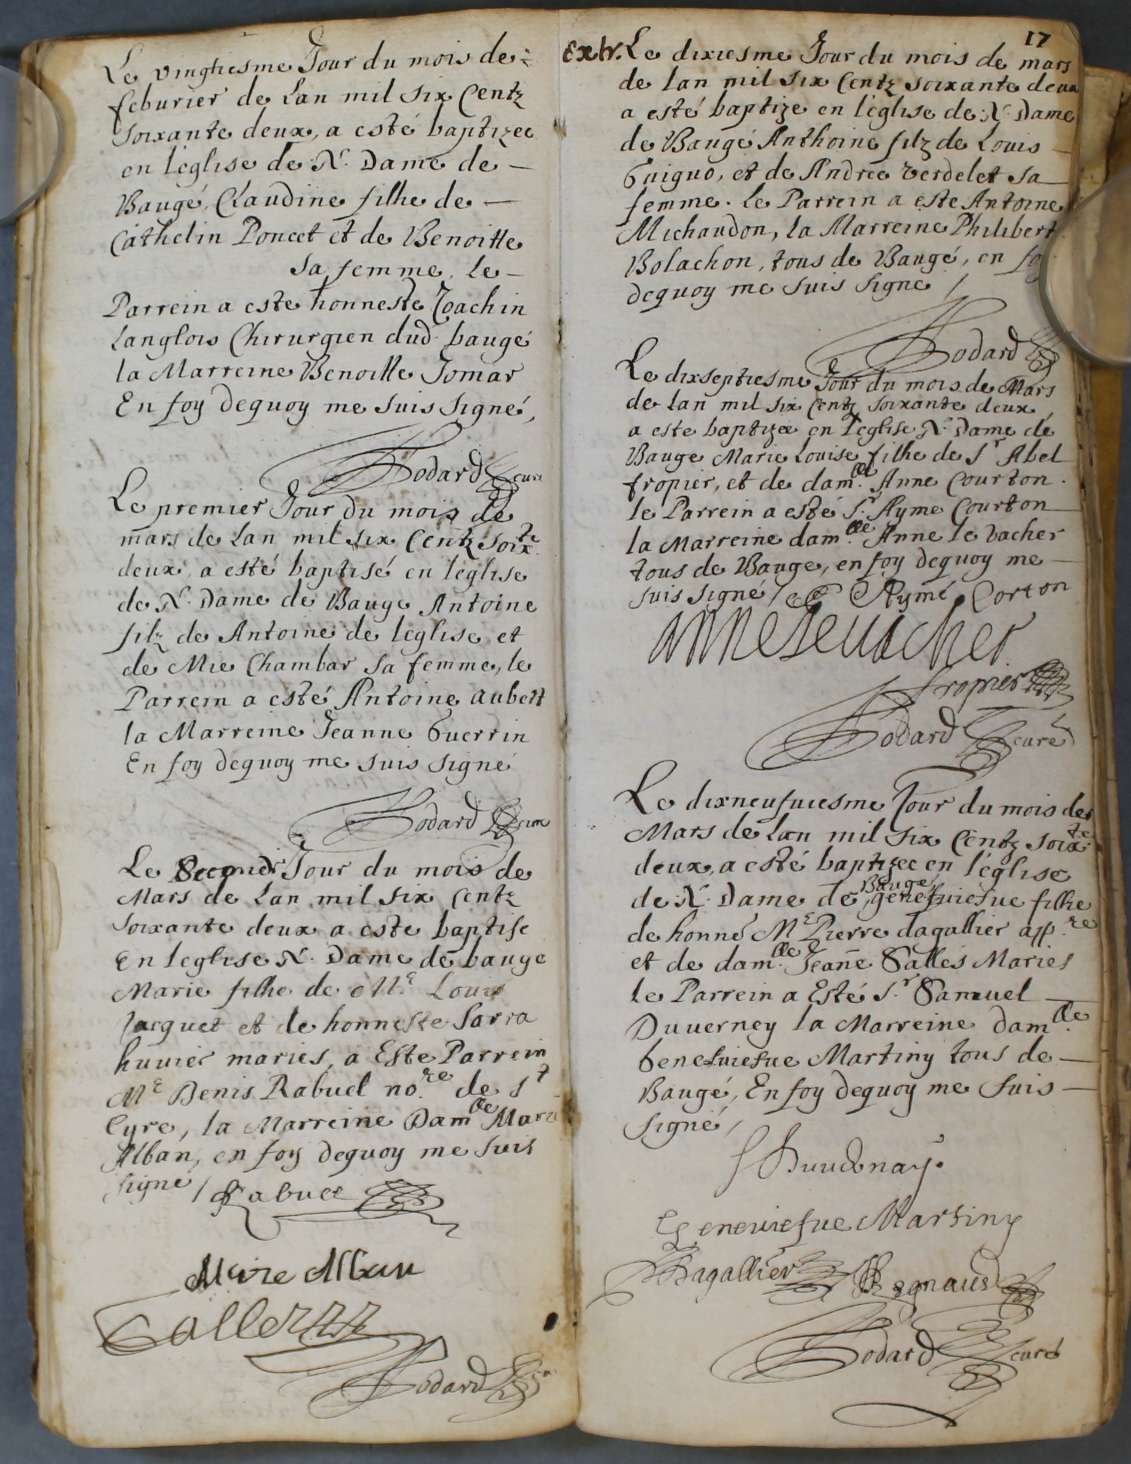 Le vingtiesme Jour du mois de
feburier de Lan mil six Centz
soixante deux, a esté baptizee
en léglise de N. Dame de
Baugé, Claudine filhe de
Cathelin Poncet et de Benoitte
sa femme, le
Parrein a este honneste Joachin
Langlois Chirurgien dud. baugé
la Marreine Benoitte Jomar
En foy dequoy me suis signé,
Bodard curé
Le premier Jour du mois de
mars de Lan mil six Centz soixte
deux, a esté baptisé en léglise
de N. Dame de Bauge Antoine
filz de Antoine de leglise et
de Mie Chambar sa femme, le
Parrein a esté Antoine aubert
la Marreine Jeanne Guerrin
En foy dequoy me suis signé
Bodard curé
Le Second Jour du mois de
Mars de Lan mil six Centz
soixante deux a este baptise
En leglise N. Dame de bauge
Marie filhe de Mre Louis
Jacquet et de honneste Sarra
huuier mariés, a Este Parrein
Me Denis Rabuel nore de St
Cyre, la Marreine Damlle Marie
Alban, en foy dequoy me suis
signé / Rabuel
Marie Alban
Bodard
17
Extr. Le dixiesme Jour du mois de mars
de lan mil six Centz soixante deux
a esté baptize en léglise de N. Dame
de Baugé Anthoine filz de Louis
Guiguo, et de Andree verdelet sa
femme. Le Parrein a este Antoine
Michaudon, la Marreine Philibert
Bolachon, tous de Baugé, en foy
dequoy me suis signé /
Bodard
Le dixseptiesme Jour du mois de Mars
de lan mil six Centz soixante deux,
a este baptizee en l'eglise N. Dame de
Bauge Marie Louise filhe de Sr Abel
fropier, et de damlle Anne Courton.
le Parrein a esté Sr Ayme Courton
la Marreine damlle Anne le vacher
tous de Bauge, en foy dequoy me
suis signé / Aymé Corton
anne le uacher
fropier
Bodard curé
Le dixneufuiesme Jour du mois de
Mars de Lan mil six Centz soixte
deux, a esté baptizee en l'église
de N. Dame de Baugé, genefuiefue filhe
de honné Me Pierre dagallier app.re
et de damlle Jeane Sallés Mariés
le Parrein a Esté Sr Samuel
Duuerney la Marreine damlle
Genefuiefue Martiny tous de
Baugé, En foy dequoy me suis
signé /
Duuernay
Geneuiefue Martiny
Dagallier Regnaud
Bodard curé